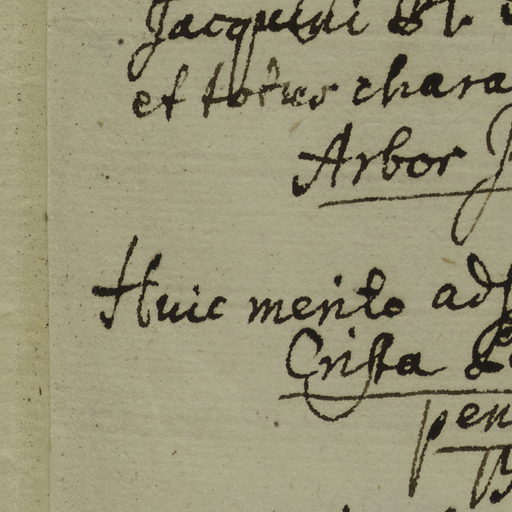 Jacquini
et totus chara
Arbor
Huic merito adj
Crista
pen